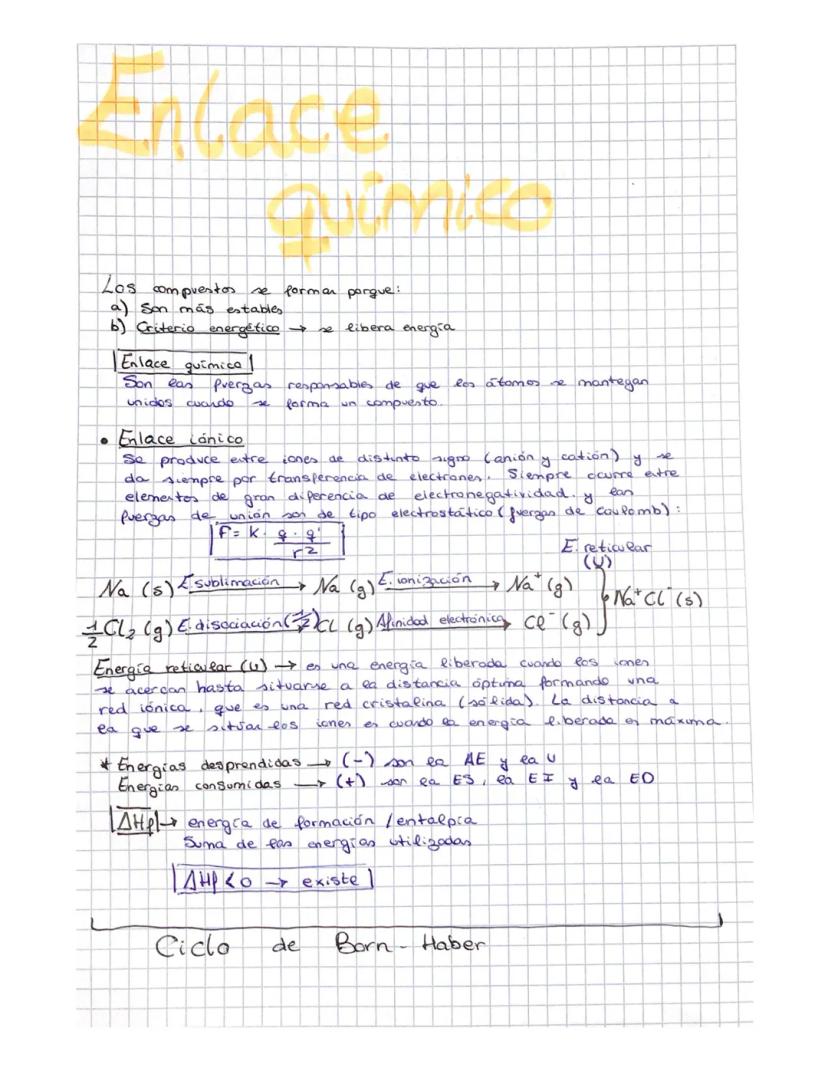 Enlace
químico
Los compuestos se forman porque:
a) Son más estables
b) Criterio energético → se libera energía
Enlace químico
Son las fuerzas responsables de que los átomos se mantegan
unidos cuando se forma un compuesto.
• Enlace iónico
Se produce entre iones de distinto signo (anión y catión) y se
da siempre por transferencia de electrones. Siempre ocurre entre
elementos de gran diferencia de electronegatividad. y las
fuerzas de unión son de tipo electrostático (fuerzas de Coulomb):
F = K · q · q' / r²
E. reticular
(U)
Na (s) E. sublimación → Na (g) E. ionización → Na⁺ (g)
} Na⁺Cl⁻ (s)
1/2 Cl₂ (g) E. disociación (1/2) → CL (g) Afinidad electrónica → Cl⁻ (g)
Energía reticular (U) → es una energía liberada cuando los iones
se acercan hasta situarse a la distancia óptima formando una
red iónica, que es una red cristalina (sólida). La distancia a
la que se sitúan los iones es cuando la energía liberada es máxima.
* Energías desprendidas → (-) son la AE y la U
Energías consumidas → (+) son la ES, la EI y la ED
ΔHf → energía de formación / entalpía
Suma de las energías utilizadas
ΔHf < 0 → existe
Ciclo de Born - Haber